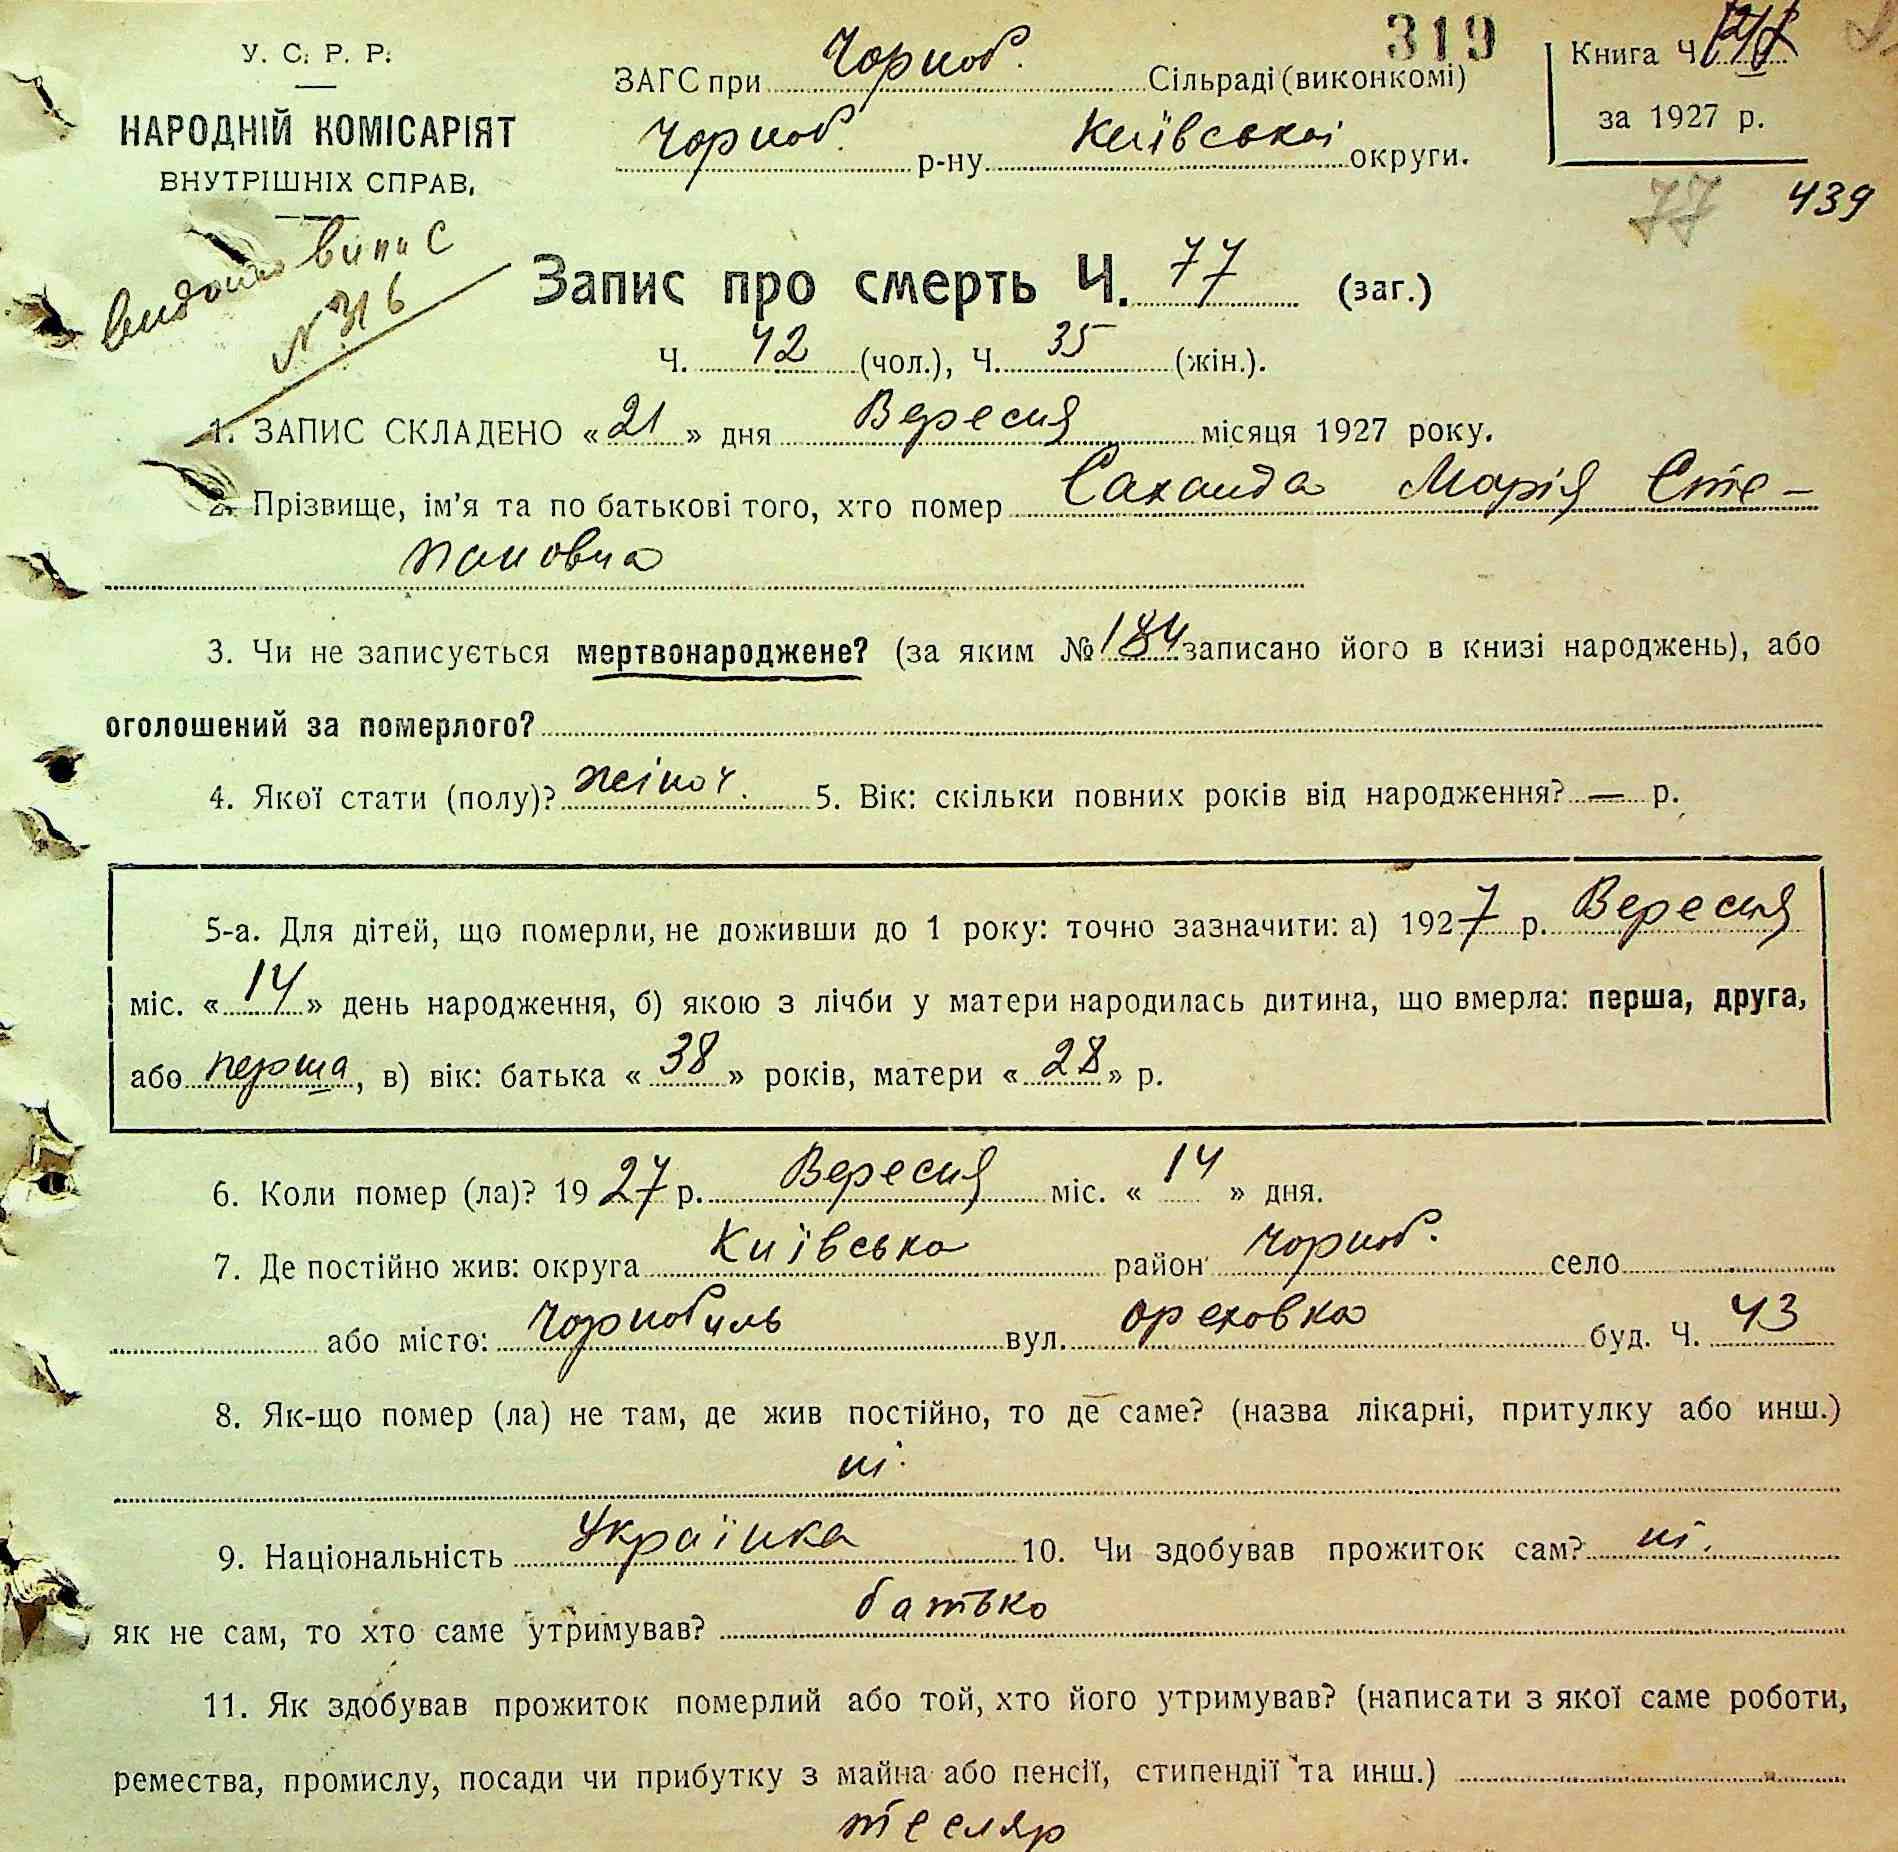 319
У. С. Р. Р.
ЗАГС при Чорноб. Сільраді (виконкомі)
Книга Ч
НАРОДНІЙ КОМІСАРІЯТ
ВНУТРІШНІХ СПРАВ.
Чорноб. р-ну Київської округи.
за 1927 р.
77 439
видано випис
№ 316
Запис про смерть Ч. 77 (заг.)
Ч. 42 (чол.), Ч. 35 (жін.).
1. ЗАПИС СКЛАДЕНО «21» дня Вересня місяця 1927 року.
2. Прізвище, ім'я та по батькові того, хто помер Саханда Марія Сте-
пановна
3. Чи не записується мертвонароджене? (за яким № 184 записано його в книзі народжень), або
оголошений за померлого?
4. Якої стати (полу)? жіноч. 5. Вік: скільки повних років від народження? — р.
5-а. Для дітей, що померли, не доживши до 1 року: точно зазначити: а) 1927 р. Вересня
міс. «14» день народження, б) якою з лічби у матери народилась дитина, що вмерла: перша, друга,
або перша, в) вік: батька «38» років, матери «28» р.
6. Коли помер (ла)? 1927 р. Вересня міс. «14» дня.
7. Де постійно жив: округа Київська район Чорноб. село
або місто: Чорнобиль вул. Ореховка буд. Ч. 43
8. Як-що помер (ла) не там, де жив постійно, то де саме? (назва лікарні, притулку або инш.)
ні.
9. Національність Українка 10. Чи здобував прожиток сам? ні.
як не сам, то хто саме утримував? батько
11. Як здобував прожиток померлий або той, хто його утримував? (написати з якої саме роботи,
ремества, промислу, посади чи прибутку з майна або пенсії, стипендії та инш.)
тесляр